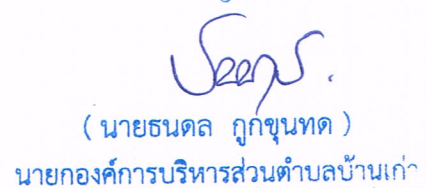 ( นายธนดล กูกขุนทด )
นายกองค์การบริหารส่วนตำบลบ้านเก่า